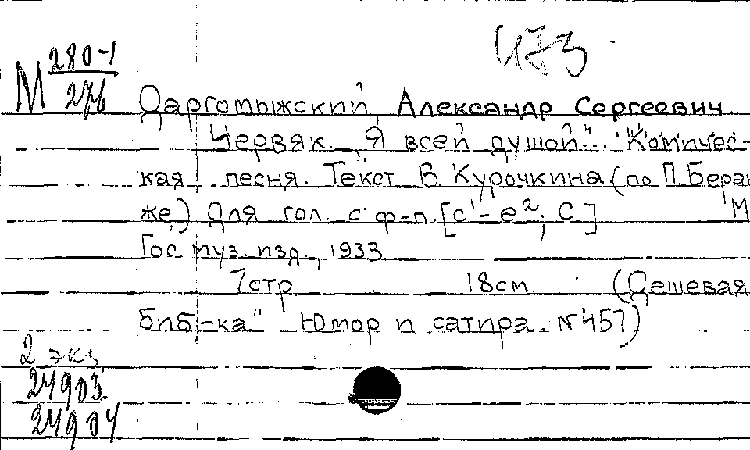 473
М 280-1
276
Даргомыжский, Александр Сергеевич
Червяк. "Я всей душой". "Комичес-
кая" песня. Текст В. Курочкина (по П. Беран
же.) Для гол. с ф-п. [c¹-e²; C] М
Гос муз. изд., 1933
7стр 18см (Дешевая
биб-ка" Юмор и сатира. N 457)
2 экз
24903.
24904